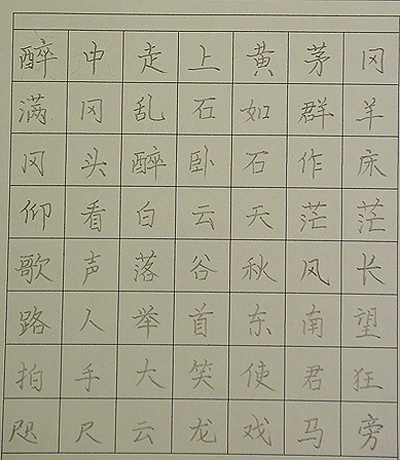 醉中走上黄茅冈
满冈乱石如群羊
冈头醉卧石作床
仰看白云天茫茫
歌声落谷秋风长
路人举首东南望
拍手大笑使君狂
咫尺云龙戏马旁